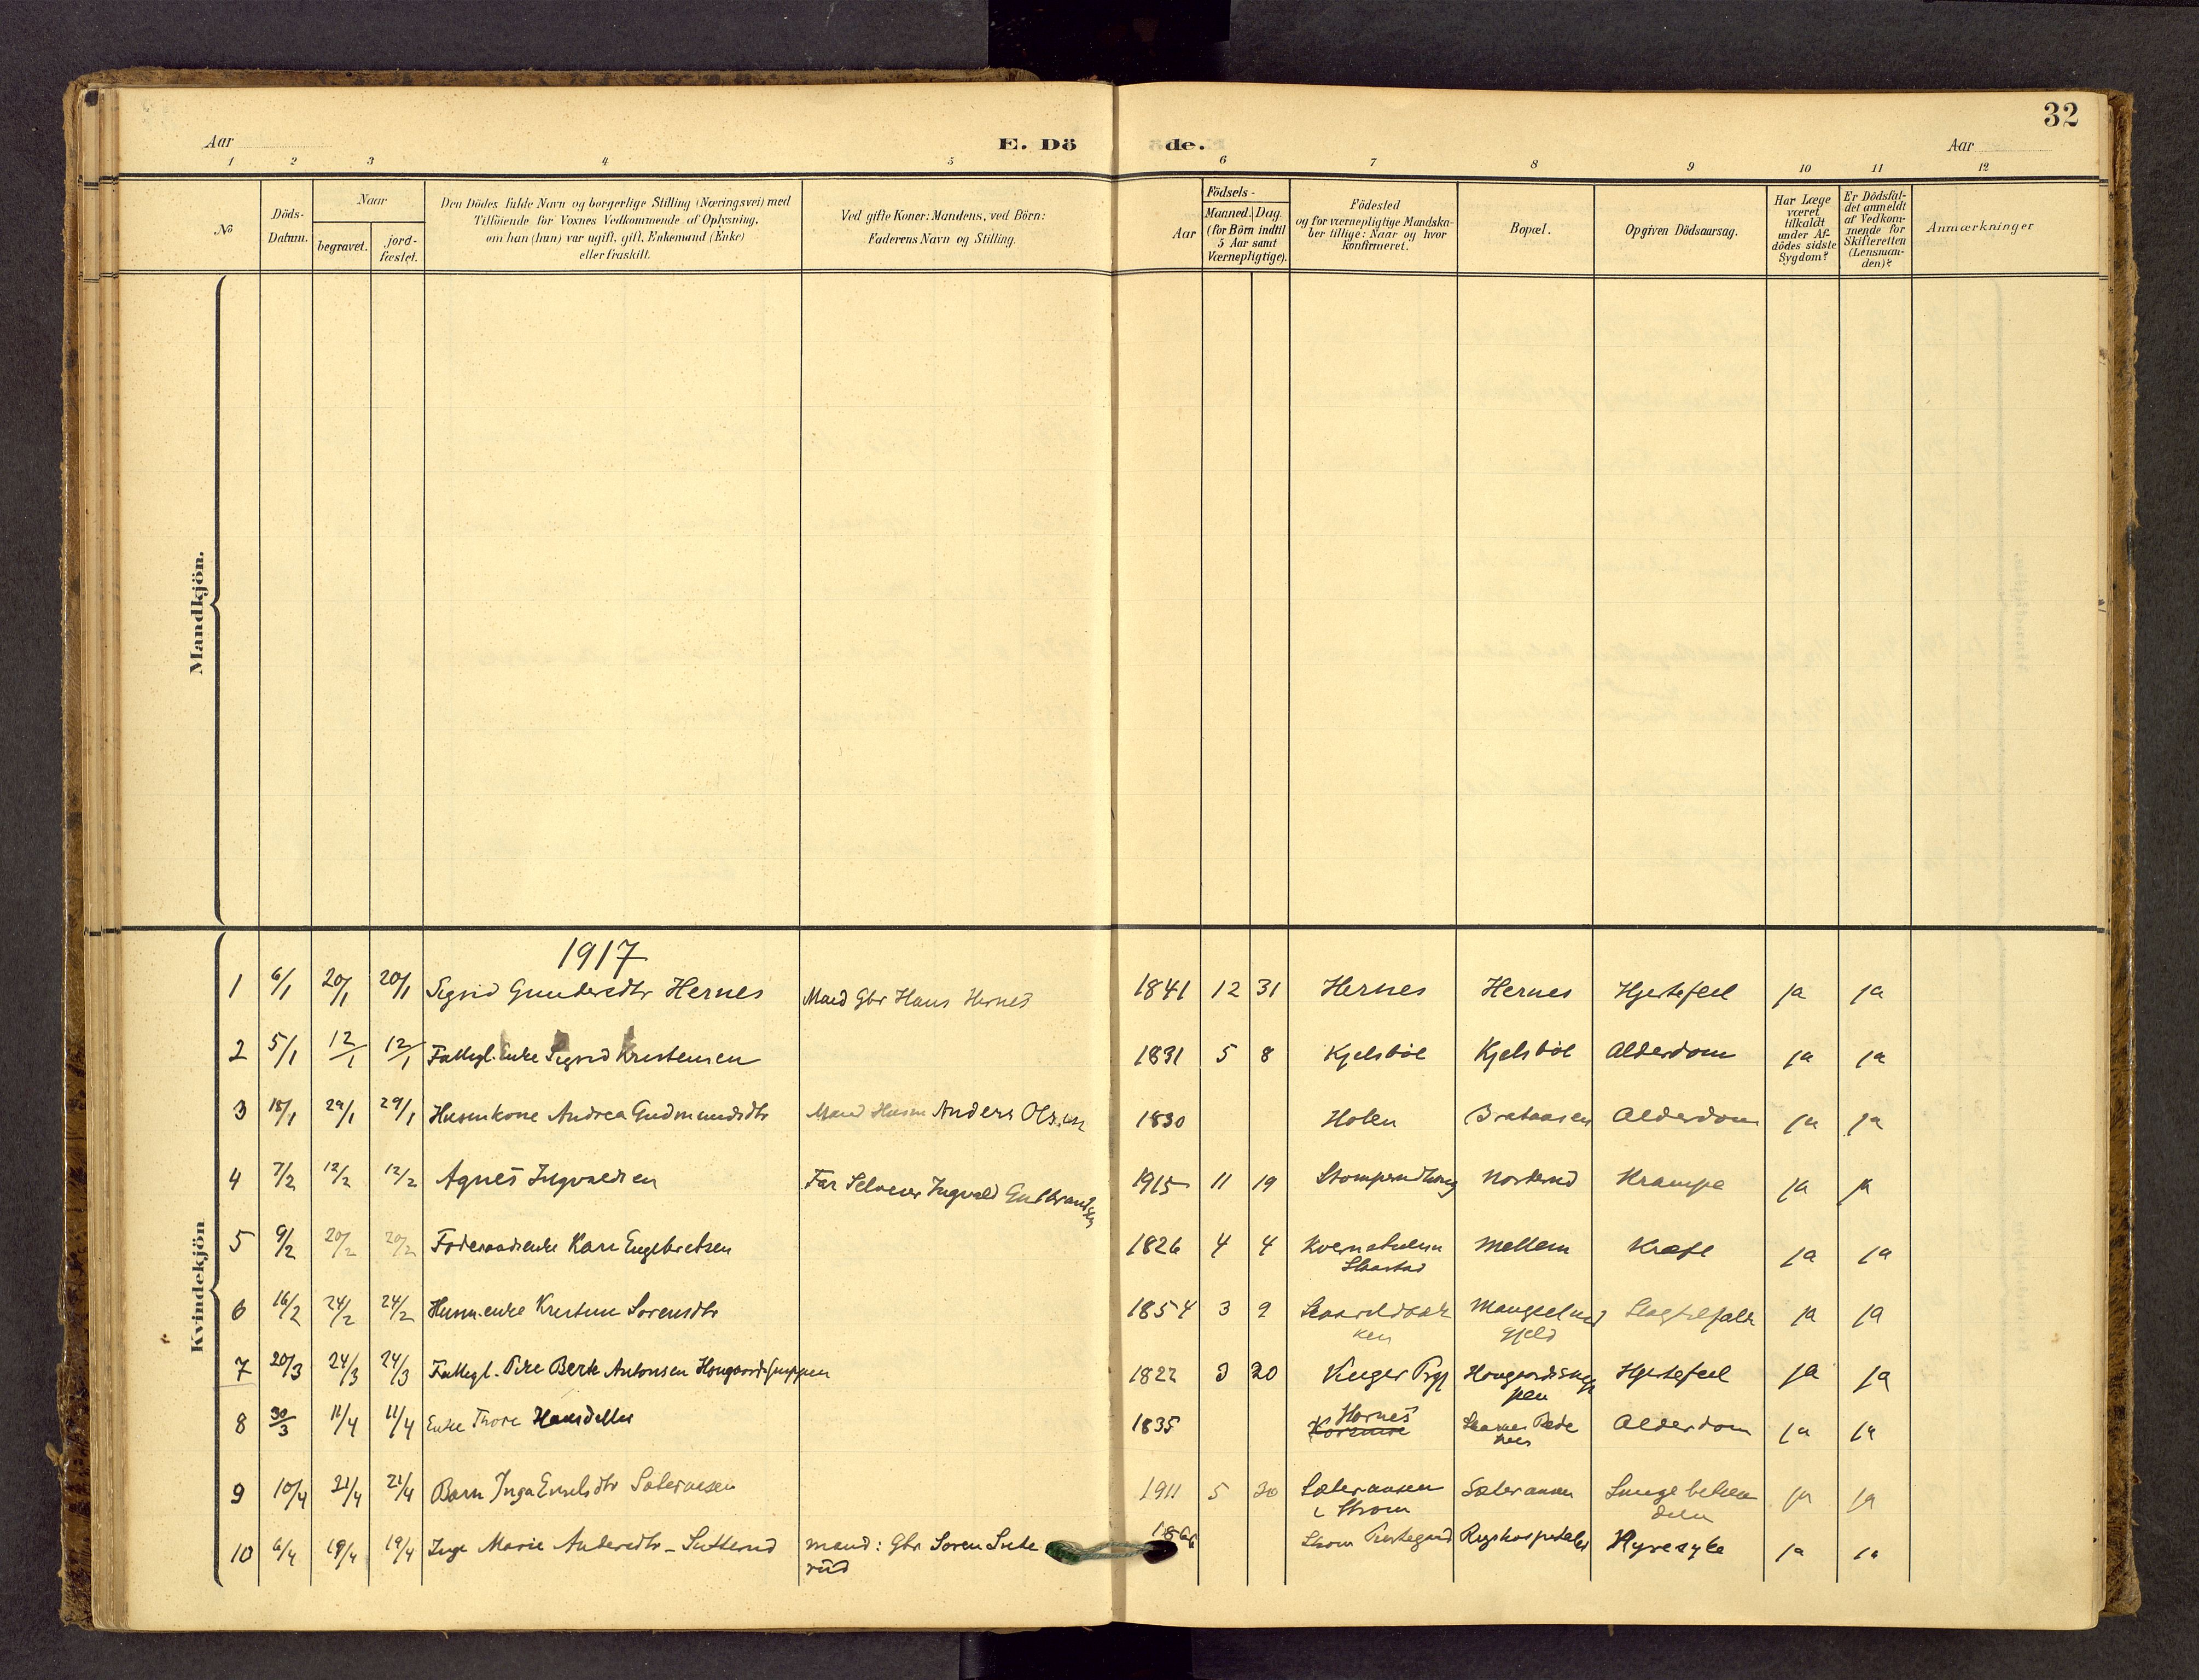 32
Aar E. Dö de. Aar
1 2 3 4 5 6 7 8 9 10 11 12
No
Döds-
Datum.
Naar
begravet.
jord-
fæstet.
Den Dödes fulde Navn og borgerlige Stilling (Næringsvei) med
Tilföiende for Voxnes Vedkommende af Oplysning,
om han (hun) var ugift, gift, Enkemand (Enke)
eller fraskilt.
Ved gifte Koner: Mandens, ved Börn:
Faderens Navn og Stilling.
Aar
Födsels-
Maaned. Dag.
(for Börn indtil
5 Aar samt
Værnepligtige).
Födested
og for værnepligtige Mandska-
ber tillige: Naar og hvor
konfirmeret.
Bopæl.
Opgiven Dödsaarsag.
Har Læge
været
tilkaldt
under Af-
dödes sidste
Sygdom?
Er Dödsfal-
det anmeldt
af Vedkom-
mende for
Skifteretten
(Lensman-
den)?
Anmærkninger
Mandkjön.
Kvindekjön
1917
1 6/1 20/1 20/1 Sigrid Gundersdtr Hernes Mand Gbr Hans Hernes 1841 12 31 Hernes Hernes Hjertefeil ja ja
2 5/1 12/1 12/1 Fattigl. Enke Sigrid Kristensen 1831 5 8 Kjelsböl Kjelsböl Alderdom ja ja
3 18/1 29/1 29/1 Husmkone Andrea Gudmundsdtr Mand Husm Anders Olsen 1830 Holen Brataasen Alderdom ja ja
4 7/2 12/2 12/2 Agnes Ingvaldsen Far Selveier Ingvald Gulbrandsen 1915 11 19 Norderud Krampe ja ja
5 9/2 20/2 20/2 Föderaadsenke Kari Engebretsen 1826 4 4 Mellem Kræft ja ja
Skarstad
6 16/2 24/2 24/2 Husm.enke Kristine Sorensdtr 1854 3 9 Slagtilfælde ja ja
ken gjeld
7 20/3 24/3 24/3 Fattigl. Pike Berte Antonsen 1822 3 20 Vinger Prgj Hjertefeil ja ja
pen
8 30/3 11/4 11/4 Enke Thore Hansdatter 1835 Hornes Alderdom ja ja
9 10/4 21/4 21/4 Barn Inga Emilsdtr Sæteraasen 1911 5 20 Sæteraasen Sæteraasen Lungebetæn ja ja
i Strom delse
10 6/4 19/4 19/4 Inge Marie Andersdtr - Sutterud mand: Gbr Soren Sutte Strom Prestegaard Rigshospitalet Nyresyke ja ja
rud